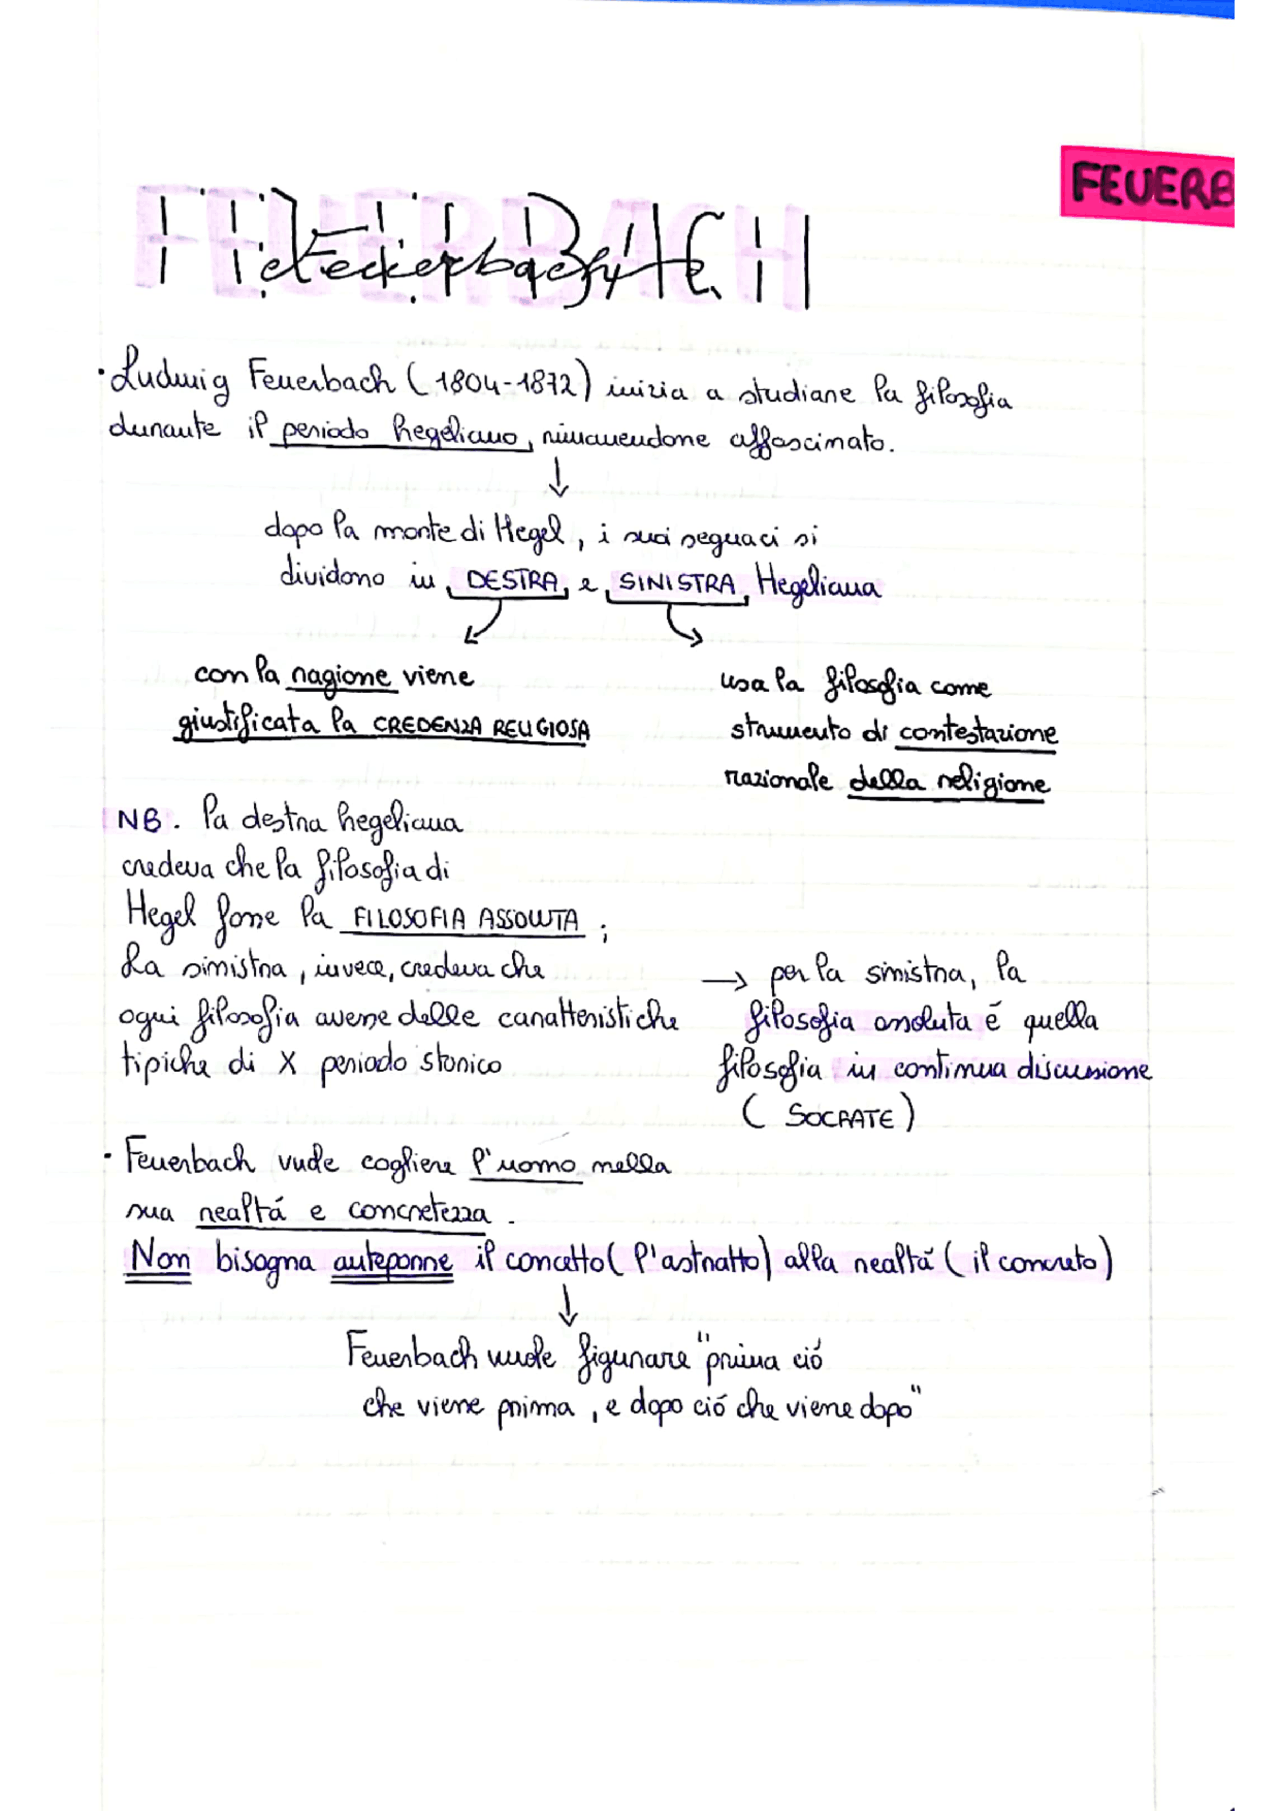 FEUERB
FEUERBACH
• Ludwig Feuerbach (1804-1872) inizia a studiare la filosofia
durante il periodo hegeliano, rimanendone affascinato.
↓
dopo la morte di Hegel, i suoi seguaci si
dividono in DESTRA e SINISTRA Hegeliana
con la ragione viene
giustificata la CREDENZA RELIGIOSA
usa la filosofia come
strumento di contestazione
razionale della religione
NB. la destra hegeliana
credeva che la filosofia di
Hegel fosse la FILOSOFIA ASSOLUTA ;
La sinistra, invece, credeva che
ogni filosofia avesse delle caratteristiche
tipiche di X periodo storico
→ per la sinistra, la
filosofia assoluta é quella
filosofia in continua discussione
( SOCRATE )
• Feuerbach vuole cogliere l'uomo nella
sua realtá e concretezza.
Non bisogna anteporre il concetto ( l'astratto) alla realtá ( il concreto)
↓
Feuerbach vuole figurare "prima ció
che viene prima, e dopo ció che viene dopo"